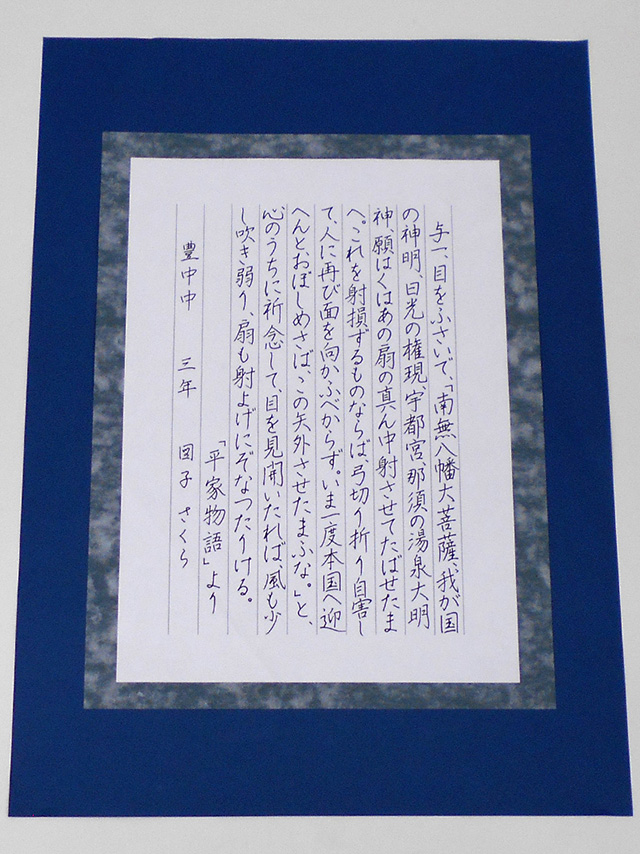 与一、目をふさいで、「南無八幡大菩薩、我が国
の神明、日光の権現、宇都宮、那須の湯泉大明
神、願はくはあの扇の真ん中射させてたばせたま
へ。これを射損ずるものならば、弓切り折り自害し
て、人に再び面を向かふべからず。いま一度本国へ迎
へんとおぼしめさば、この矢外させたまふな。」と、
心のうちに祈念して、目を見開いたれば、風も少
し吹き弱り、扇も射よげにぞなつたりける。
「平家物語」より
豊中中 三年 図子 さくら